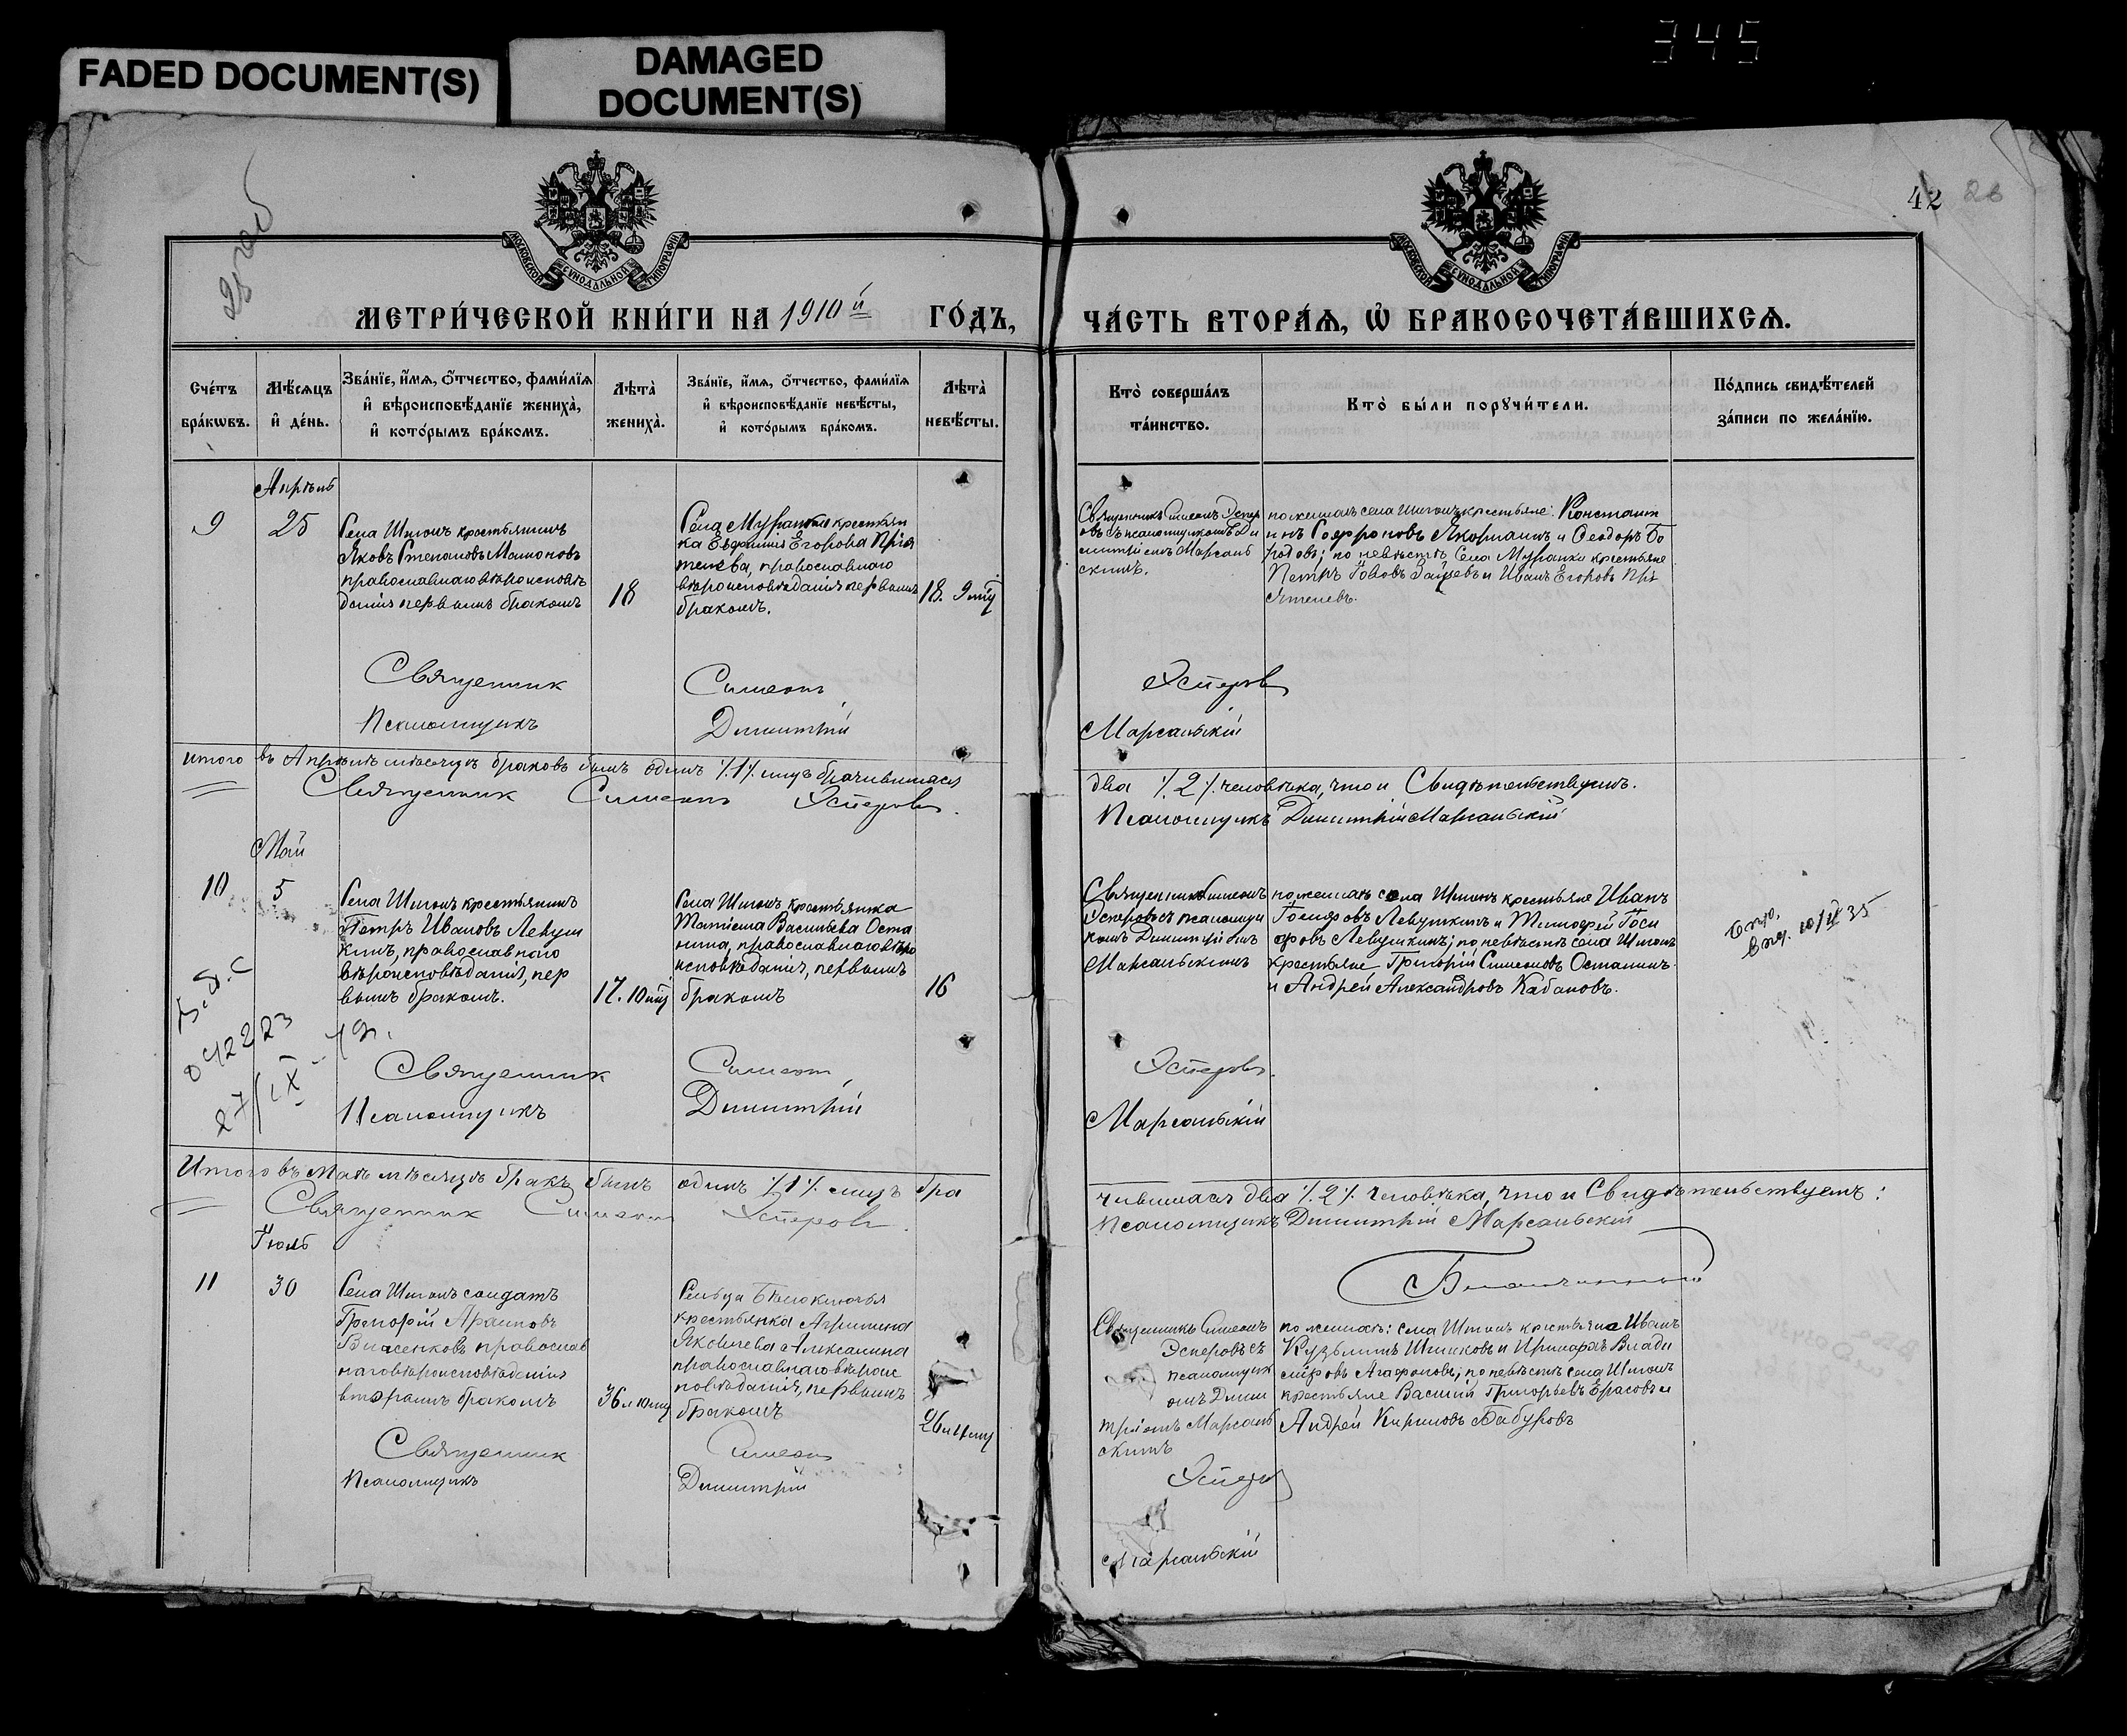 FADED DOCUMENT(S)
DAMAGED
DOCUMENT(S)
345
42 26
МОСКОВСКОЙ СѴНОДАЛЬНОЙ ТИПОГРАФІИ
МОСКОВСКОЙ СѴНОДАЛЬНОЙ ТИПОГРАФІИ
МЕТРИ́ЧЕСКОЙ КНИ́ГИ НА 1910 й ГО́ДЪ,
ЧА́СТЬ ВТОРА́Ѧ, Ѡ҆ БРАКОСОЧЕТА́ВШИХСѦ.
Сче́тъ бра́кѡвъ.
Мѣ́сѧцъ и҆ де́нь.
Зва́нїе, и҆́мѧ, ѻ҆́тчество, фами́лїѧ
и҆ вѣроисповѣ́данїе жениха̀,
и҆ кото́рымъ бра́комъ.
Лѣта̀ жениха̀.
Зва́нїе, и҆́мѧ, ѻ҆́тчество, фами́лїѧ
и҆ вѣроисповѣ́данїе невѣ́сты,
и҆ кото́рымъ бра́комъ.
Лѣта̀ невѣ́сты.
Кто̀ соверша́лъ
та́инство.
Кто̀ бы́ли порꙋчи́тели.
По́дпись свидѣ́телей
за́писи по жела́нїю.
Апрѣль
9
25
Села Шигонъ крестьянинъ
Яковъ Степановъ Мамоновъ
православнаго вѣроисповѣ
данія первымъ бракомъ
18
Села Муранки крестьян
ка Евфимія Егорова Прія
телева, православнаго
вѣроисповѣданія первымъ
бракомъ.
18. 9 мц
Священникъ Симеонъ Эспер
овъ съ псаломщикомъ Ди
митріемъ Марсаль
скимъ.
по женихѣ села Шигонъ крестьяне: Констант
инъ Софроновъ и Ѳеодоръ Бо
родовъ; по невѣстѣ Села Муранки крестьяне
Петръ Іововъ Зайцевъ и Иванъ Егоровъ Прі
ятелевъ.
Священник Симеонъ Эсперов
Псаломщикъ Димитрій Марсальскій
Итого въ Апрѣлѣ мѣсяцѣ браковъ былъ одинъ ٪1٪ лицъ брачившихся
два ٪2٪ человѣка, что и Свидѣтельствуемъ.
Священник Симеонъ Эсперовъ.
Псаломщикъ Димитрій Марсальскій
Май
10
5
Села Шигонъ крестьянинъ
Петръ Ивановъ Левуш
кинъ, православнаго
вѣроисповѣданія, пер
вымъ бракомъ.
17. 10 мц
Села Шигонъ крестьянка
Татіана Васильева Оста
нина, православнаго вѣро
исповѣданія, первымъ
бракомъ
16
Священникъ Симеонъ
Эсперовъ съ псаломщи
комъ Димитріемъ
Марсальскимъ
по женихѣ села Шигонъ крестьяне Иванъ
Іосифовъ Левушкинъ и Тимофей Іоси
фовъ Левушкинъ; по невѣстѣ села Шигонъ
крестьяне Григорій Симеоновъ Останинъ
и Андрей Александровъ Кабановъ.
10/II 35
042223
27/IX
Священник Симеонъ Эсперовъ.
Псаломщикъ Димитрій Марсальскій
Итого въ Маѣ мѣсяцѣ бракъ былъ одинъ ٪1٪ лицъ бра
чившихся два ٪2٪ человѣка, что и Свидѣтельствуемъ:
Священник Симеонъ Эсперовъ.
Псаломщикъ Димитрій Марсальскій
Благочинный
Іюль
11
30
Села Шигонъ солдатъ
Григорій
Власенковъ православ
наго вѣроисповѣданія
вторымъ бракомъ
36 л 10 мц
Сельца Бѣлоключья
крестьянка Агрипина
Яковлева Алексанина
православнаго вѣроис
повѣданія, первымъ
бракомъ
26 л 1 мц
Священникъ Симеонъ
Эсперовъ съ
псаломщик
омъ Дими
тріемъ Марсаль
скимъ
по женихѣ: села Шигонъ крестьяне Иванъ
Кузьминъ Шишковъ и Иринархъ Влади
міровъ Агафоновъ; по невѣстѣ села Шигонъ
крестьяне Василій Григорьевъ Ерасовъ и
Андрей Кириловъ Бабуровъ
Священник Симеонъ Эсперов
Псаломщикъ Димитрій
Марсальскій